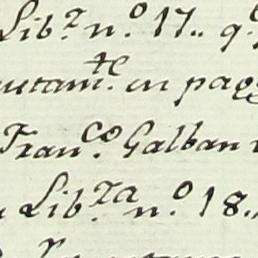 Lib.ᵃ n.º 17.. q.
utam.ᵗᵉ en pag
Fran.ᶜᵒ Galban
Lib.ᶻᵃ n.º 18..